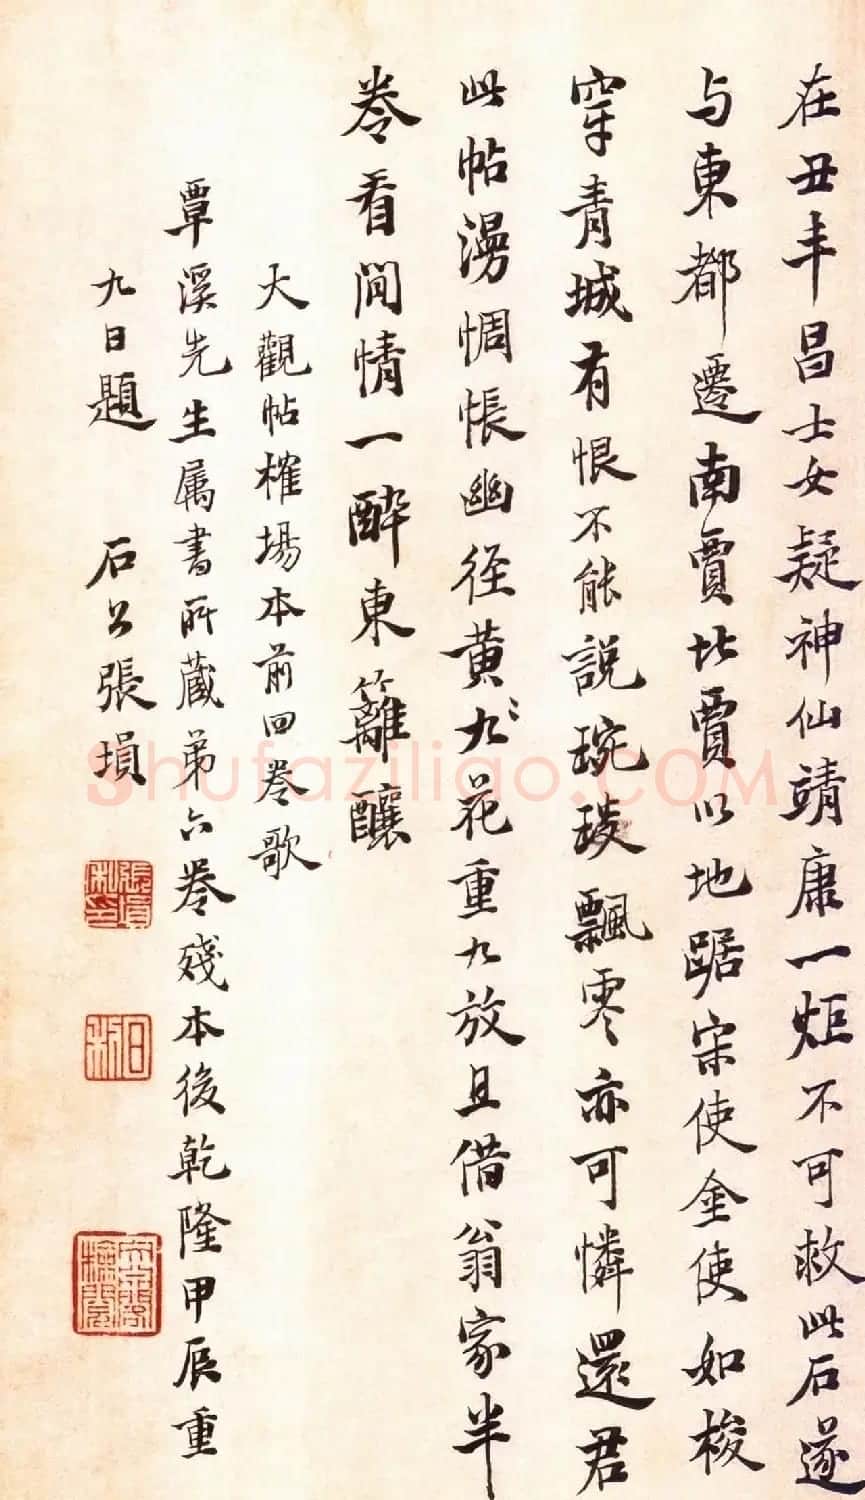 在丑丰昌士女疑神仙靖康一炬不可救此石遂
与東都遷南賈北賈以地踞宋使金使如梭
穿青城有恨不能說琬琰飄零亦可憐還君
此帖漫惆悵幽徑黃九〻花重九放且借翁家半
卷看閒情一醉東籬釀
大觀帖榷場本前四卷歌
覃溪先生属書所藏第六卷殘本後乾隆甲辰重
九日題 石公張塤
張塤私印
Shufaziliao.COM